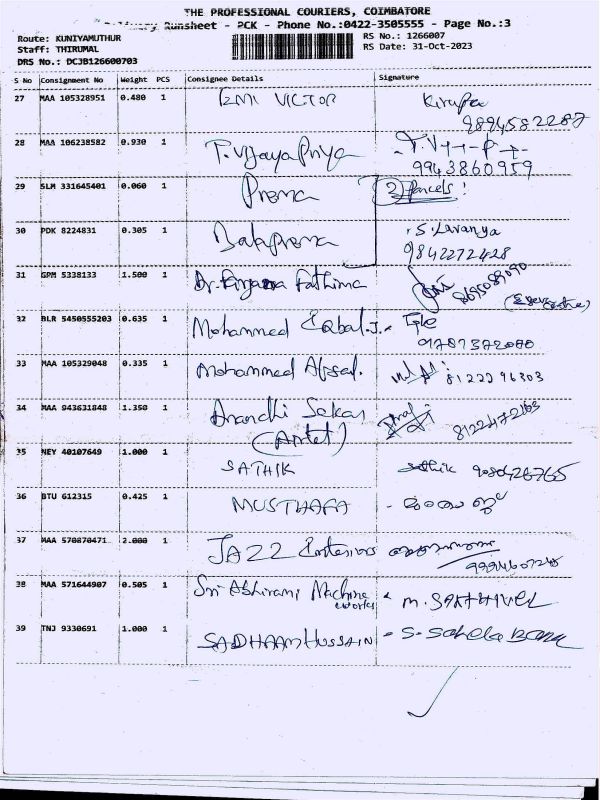 THE PROFESSIONAL COURIERS, COIMBATORE
Runsheet - PCK - Phone No.:0422-3505555 - Page No.:3
Route: KUNIYAMUTHUR
RS No.: 1266007
Staff: THIRUMAL
RS Date: 31-Oct-2023
DRS No.: DCJB126600703
S No Consignment No Weight PCS Consignee Details Signature
27 MAA 105328951 0.480 1 VICTOR Kirupa
9894582287
28 MAA 106238582 0.930 1 T.VijayaPriya
9943860959
29 SLM 331645401 0.060 1 Prema 2 Parcels !
30 PDK 8224831 0.305 1 BalaPrema S. Lavanya
9842272428
31 GPM 5338133 1.500 1 Dr. Fathima
32 BLR 5450555203 0.635 1 Mohammed Eqbal.J.
33 MAA 105329048 0.335 1 Mohammed Afsal.
34 MAA 943631848 1.350 1 Anandhi Sekar
8122472163
35 NEY 40107649 1.000 1 SATHIK Sathik
36 BTU 612315 0.425 1 MUSTHAFA
37 MAA 570870471 2.000 1 JAZZ Interiors
38 MAA 571644907 0.505 1 Sri Abhirami Machine M. SAKTHIVEL
works
39 TNJ 9330691 1.000 1 SADHAAM HUSSAIN S. Sahela Banu